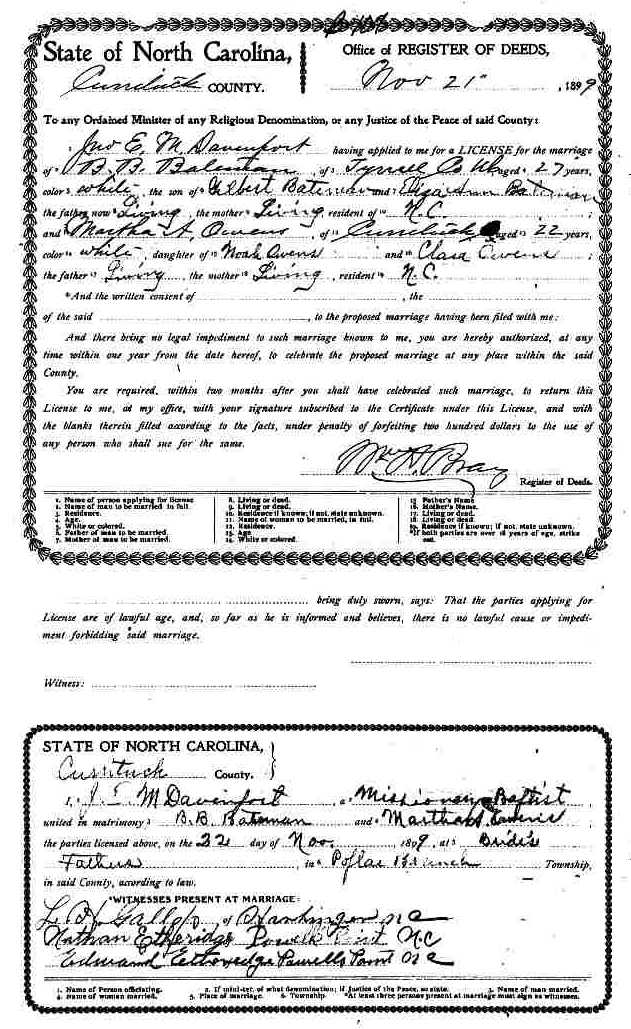 State of North Carolina, Office of REGISTER OF DEEDS,
Currituck COUNTY. Nov 21" , 1899
To any Ordained Minister of any Religious Denomination, or any Justice of the Peace of said County:
Jno E. M Davenport having applied to me for a LICENSE for the marriage
of B. B. Bateman of Tyrrell Co aged 27 years,
color white , the son of Gilbert Bateman and Bateman
the father now Living , the mother Living , resident of N.C. ;
and Martha A, Owens , of Currituck aged 22 years,
color white , daughter of Noah Owens and Clara Owens ;
the father Living , the mother Living , resident N.C.
*And the written consent of , the
of the said , to the proposed marriage having been filed with me:
And there being no legal impediment to such marriage known to me, you are hereby authorized, at any
time within one year from the date hereof, to celebrate the proposed marriage at any place within the said
County.
You are required, within two months after you shall have celebrated such marriage, to return this
License to me, at my office, with your signature subscribed to the Certificate under this License, and with
the blanks therein filled according to the facts, under penalty of forfeiting two hundred dollars to the use of
any person who shall sue for the same.
Wm H. Bray
Register of Deeds.
1. Name of person applying for license 8. Living or dead. 15 Father's Name
1. Name of man to be married in full. 9. Living or dead. 16. Mother's Name.
3. Residence. 10. Residence if known; if not, state unknown. 17. Living or dead.
4. Age. 11. Name of woman to be married, in full. 18. Living or dead.
5. White or colored. 12. Residence. 19. Residence if known; if not, state unknown.
6. Father of man to be married. 13. Age *If both parties are over 18 years of age, strike
7. Mother of man to be married. 14. White or colored. out.
being duly sworn, says: That the parties applying for
License are of lawful age, and, so far as he is informed and believes, there is no lawful cause or impedi-
ment forbidding said marriage.
Witness:
STATE OF NORTH CAROLINA,
Currituck County.
I, J. E. M Davenport a Missionary Baptist
united in matrimony B. B. Bateman and Martha A. Owens
the parties licensed above, on the 22 day of Nov. 1899, at Bride's
Fathers , in Poplar Branch Township,
in said County, according to law.
*WITNESSES PRESENT AT MARRIAGE:
L. H. Gallop of Harbinger NC
Nathan Etheridge Powells Point NC
Edmund Etheredge Powells Point NC
1. Name of Person officiating. 2. If minister, of what denomination; if Justice of the Peace, so state. 3. Name of man married.
4. Name of woman married. 5. Place of marriage. 6. Township. *At least three persons present at marriage must sign as witnesses.